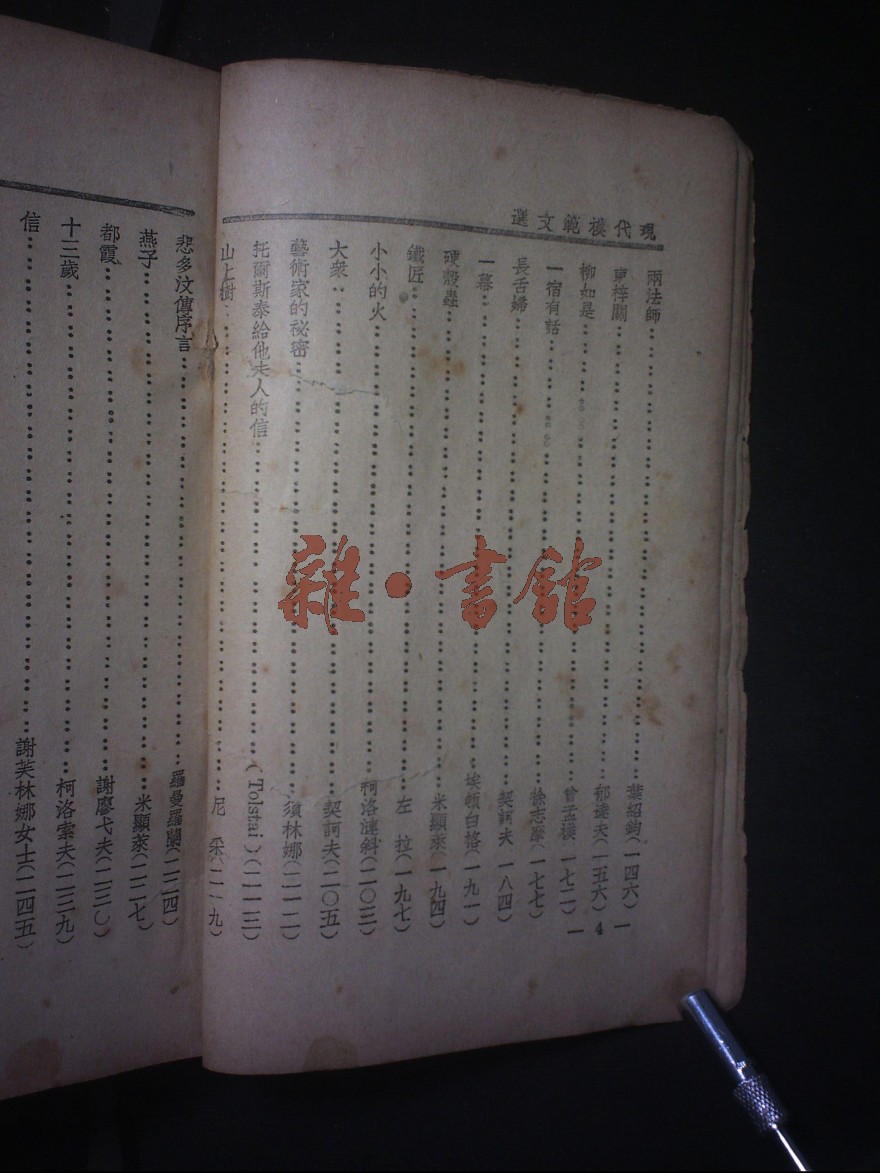 現代模範文選
兩法師……葉紹鈞(一四六)
東梓關……郁達夫(一五六)
柳如是……曾孟樸 一七二)
一宿有話……徐志摩(一七七)
長舌婦……契訶夫 一八四)
一幕……埃頓白格(一九一)
硬殼蟲……米顯萊(一九四)
鐵匠……左 拉(一九七)
小小的火……柯洛漣斜(二〇三)
大衆……契訶夫(二〇五)
藝術家的祕密……須林娜(二一二)
托爾斯泰給他夫人的信……(Tolstai)(二一三)
山上樹……尼 采(二一九)
— 4 —
悲多汶傳序言……羅曼羅蘭(二二四)
燕子……米顯萊(二二七)
都霞……謝廖弋夫(二三〇)
十三歲……柯洛索夫(二三九)
信……謝芙林娜女士(二四五)
雜·書館